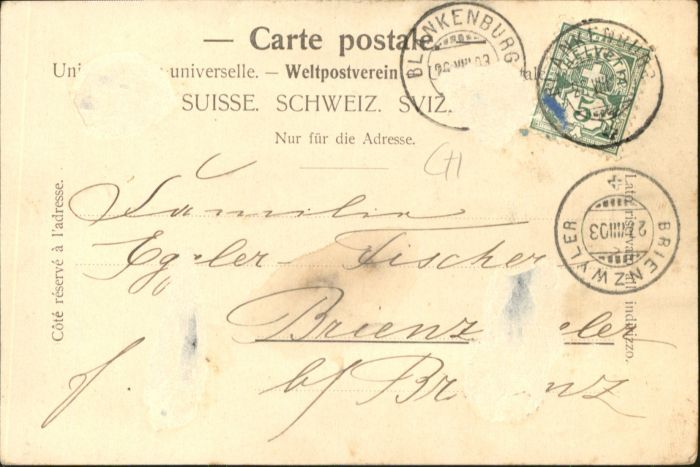 — Carte postale. —
Uni universelle. — Weltpostverein
SUISSE. SCHWEIZ. SVIZ.
Nur für die Adresse.
BLANKENBURG
VIII 03
HELVETIA
5
BRIENZWYLER
2 VIII 03
Côté réservé à l'adresse.
Familie
Egler-Fischer
Brienz ler
b/ Br nz
Lato riservato all' indirizzo.